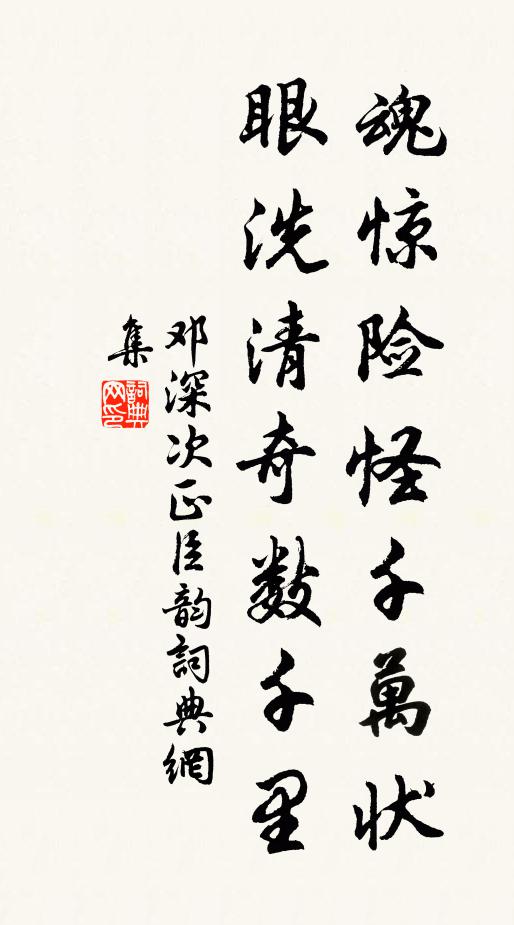 魂惊险怪千萬状
眼洗清奇数千里
邓深次正臣韵詞典網
集
詞典
网印